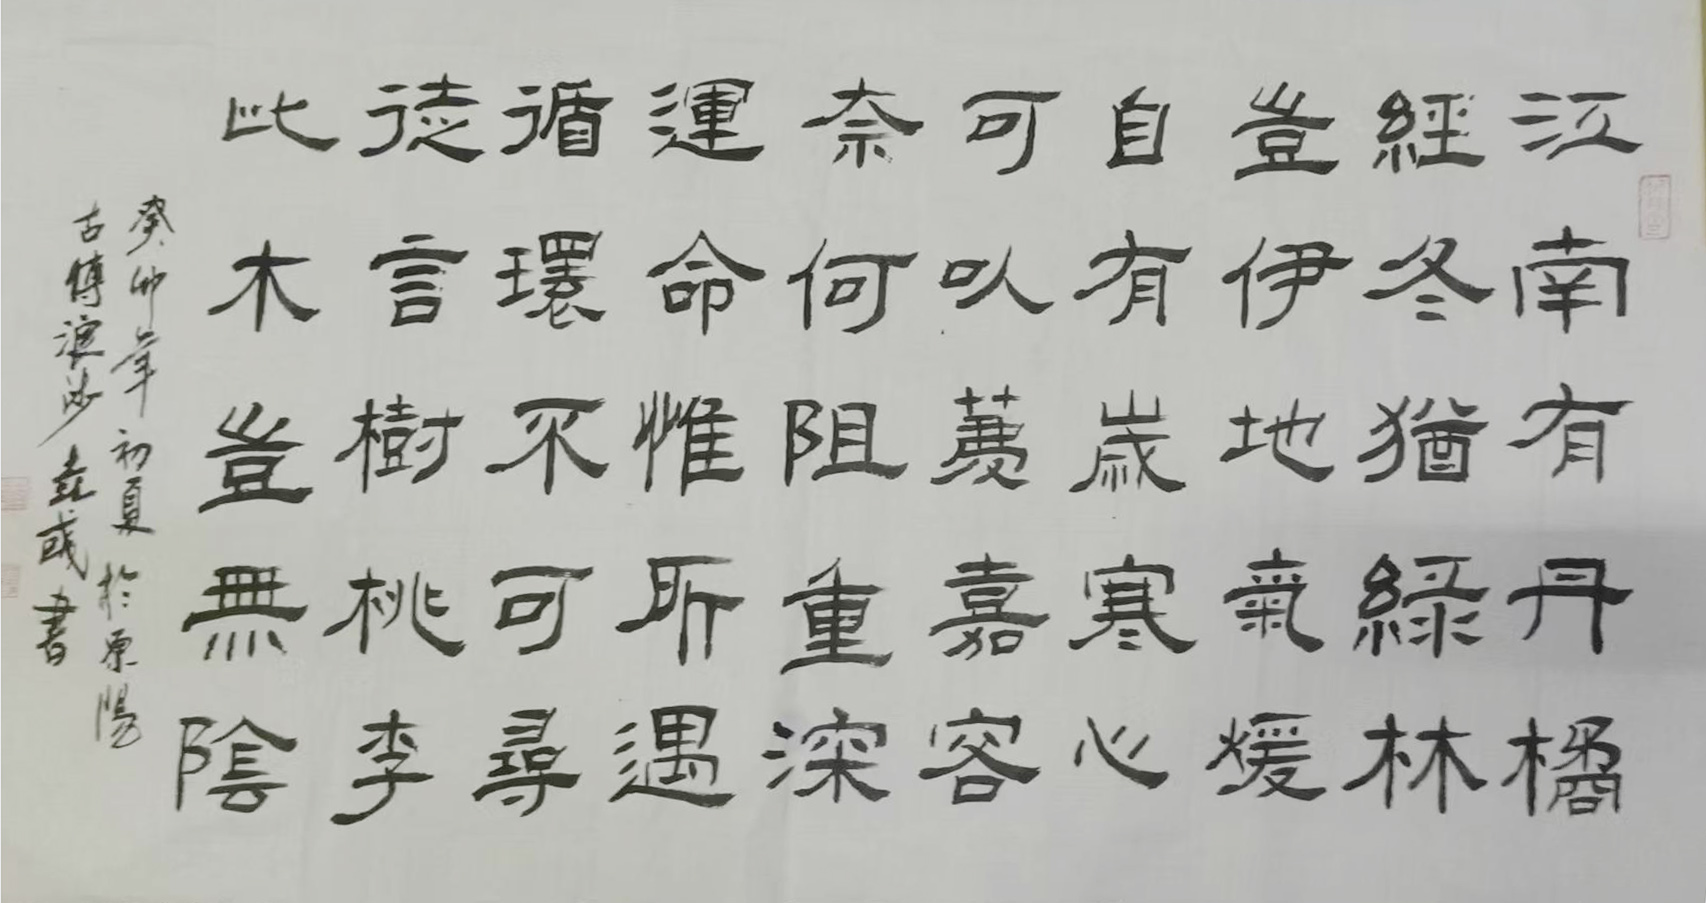 江南有丹橘
經冬猶綠林
豈伊地氣煖
自有歲寒心
可以薦嘉容
奈何阻重深
運命惟所遇
循環不可尋
徒言樹桃李
此木豈無陰
癸卯年初夏於原陽
古博浪沙彧書